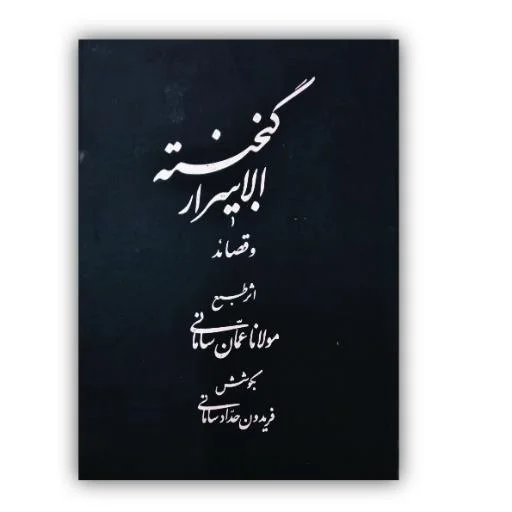 گنجینه
الاسرار
و قصائد
اثر طبع
مولانا عمّان سامانی
بکوشش
فریدون حدّاد سامانی